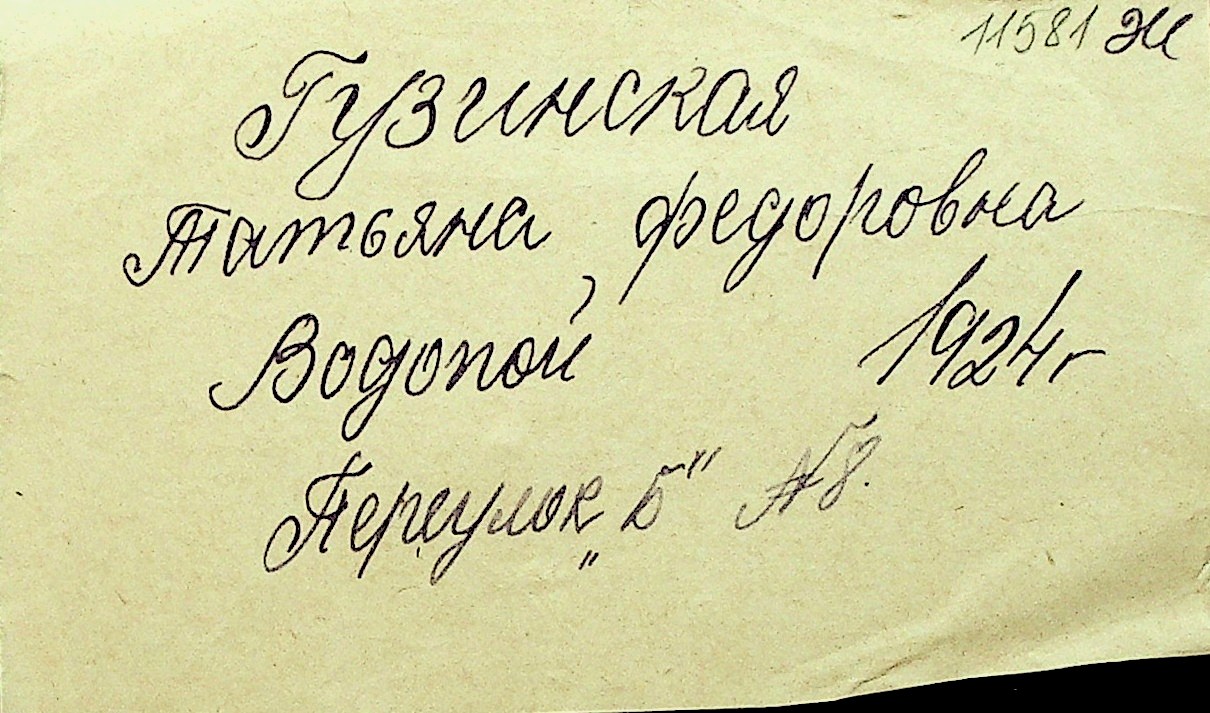 11581 Ж
Гузинская
Татьяна федоровна
Водопой, 1924г
Переулок „Б" №8.